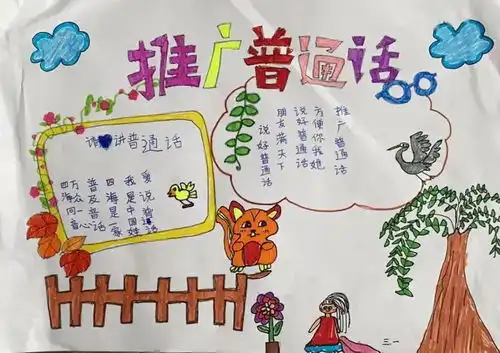 推广普通话
请讲普通话
爱说普通话
我是中国
四海是一家
普及话
万众一心
四海同音
推广普通话
方便你我他
说好普通话
朋友满天下
说好普通话
三一